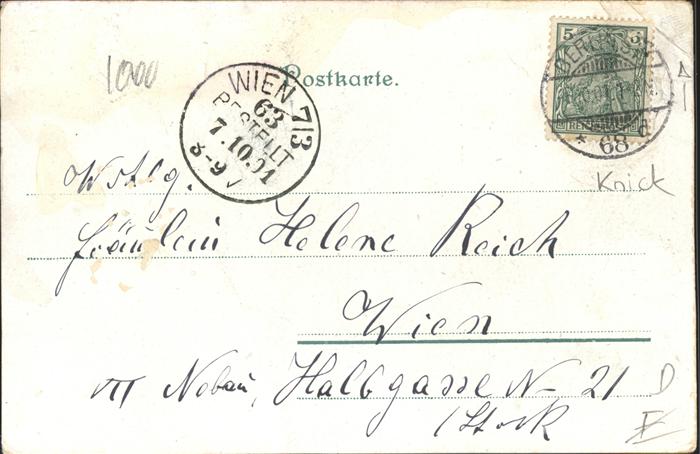 1000
Postkarte.
5
BERLIN S.W.
* 68 d
WIEN 7/3
63
BESTELLT
7.10.01
8-9 V
Knick
Wohlg.
Fräulein Helene Reich
Wien
VII Neubau, Halbgasse No 21
1 Stock
D